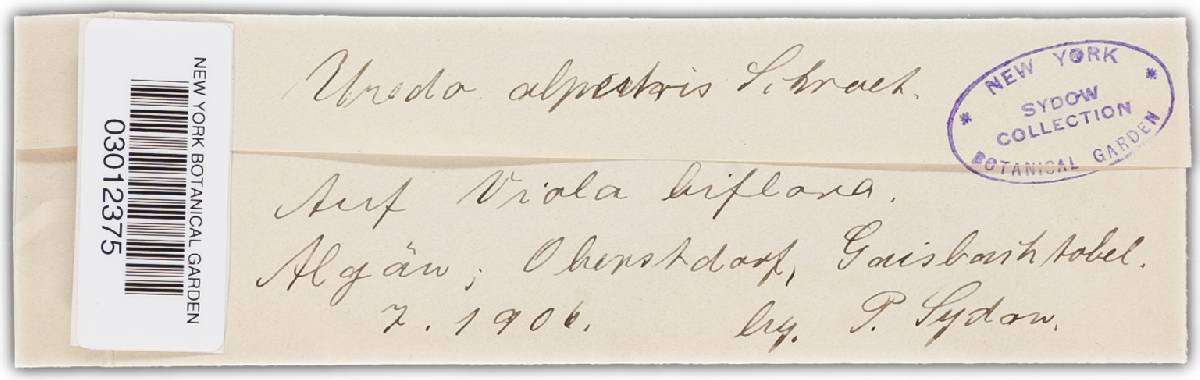 NEW YORK BOTANICAL GARDEN
03012375
Uredo alpestris Schroet.
NEW YORK
SYDOW
COLLECTION
BOTANICAL GARDEN
Auf Viola biflora.
Algäu, Oberstdorf, Gaisbachtobel.
7. 1906. leg. P. Sydow.